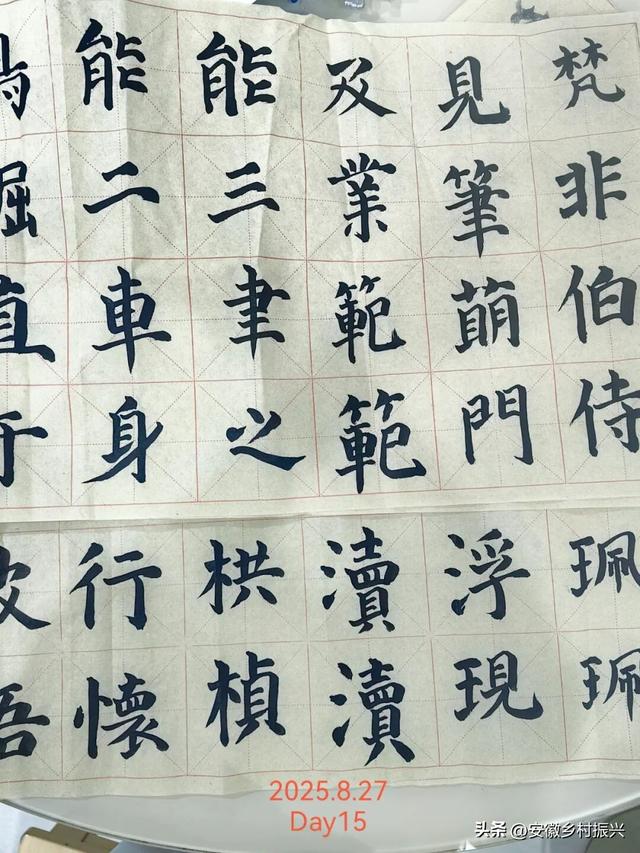 梵非伯侍
見筆萌門
及業範範
能三聿之
能二車身
直
珮珮
浮現
瀆瀆
栱楨
行懷
2025.8.27
Day15
头条 @安徽乡村振兴